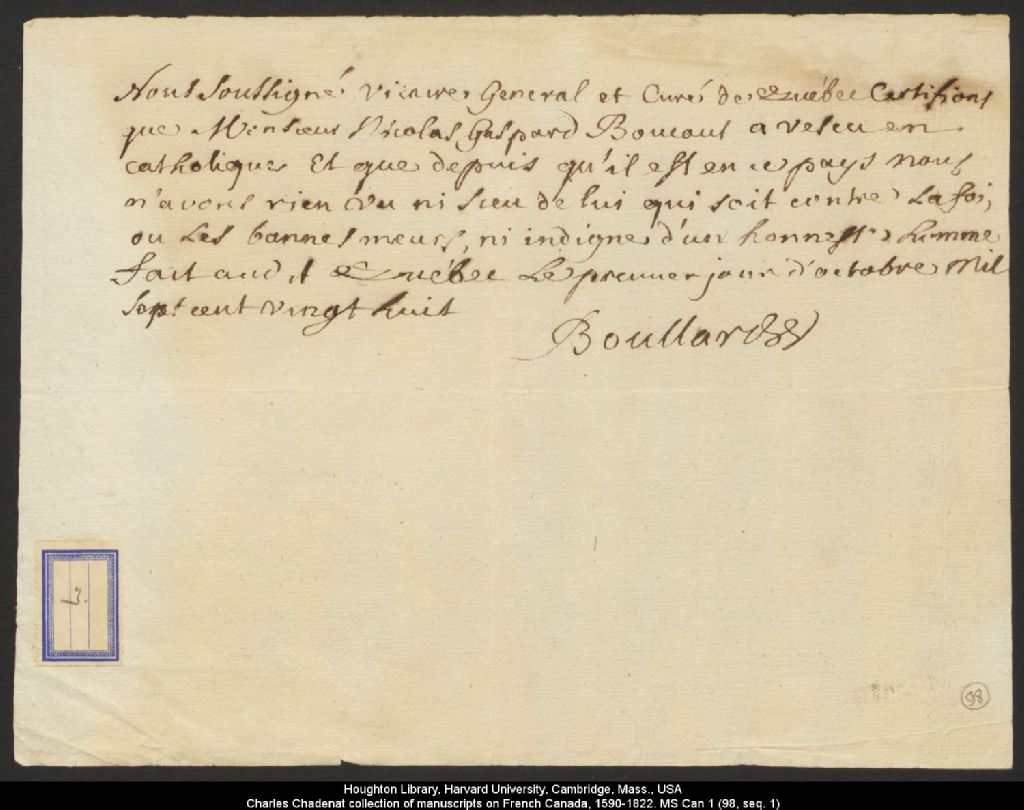 Nous Soussigné Vicaire General et Curé de Quêbec Certifions
que Monsieur Nicolas Gaspard Boucaut a vescu en
catholique Et que depuis qu'il est en ce pays nous
n'avons rien vu ni sceu de lui qui soit contre La foi,
ou Les bonnes meurs, ni indigne d'un honneste homme
fait aud.t Quêbec Le premier jour d'octobre Mil
Sept cent vingt huit
Boullard
3.
98
Houghton Library, Harvard University, Cambridge, Mass., USA
Charles Chadenat collection of manuscripts on French Canada, 1590-1822. MS Can 1 (98, seq. 1)